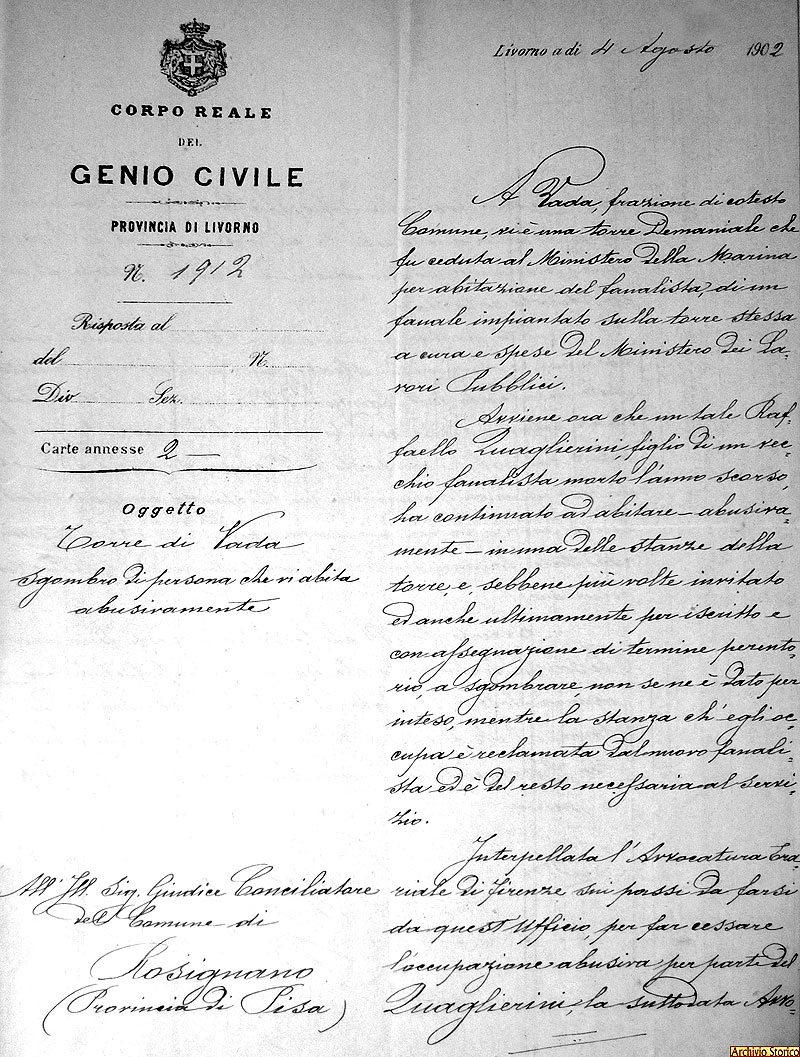 CORPO REALE
DEL
GENIO CIVILE
PROVINCIA DI LIVORNO
N. 1912
Risposta al
del N.
Div Sez.
Carte annesse 2 —
Oggetto
Torre di Vada
sgombro di persona che vi abita
abusivamente
All' Ill. Sig. Giudice Conciliatore
del Comune di
Rosignano
(Provincia di Pisa)
Livorno a dì 4 Agosto 1902
A Vada, frazione di cotesto
Comune, vi è una torre Demaniale che
fu ceduta al Ministero della Marina
per abitazione del fanalista, di un
fanale impiantato sulla torre stessa
a cura e spese del Ministero dei La-
vori Pubblici.
Avviene ora che un tale Raf-
faello Quaglierini, figlio di un vec-
chio fanalista morto l'anno scorso,
ha continuato ad abitare - abusiva-
mente - in una delle stanze della
torre, e, sebbene più volte invitato
ed anche ultimamente per iscritto e
con assegnazione di termine perento-
rio, a sgombrare, non se ne è dato per
inteso, mentre la stanza ch'egli oc-
cupa è reclamata dal nuovo fanali-
sta ed è del resto necessaria al servi-
zio.
Interpellata l'Avvocatura Era-
riale di Firenze sui passi da farsi
da quest'Ufficio, per far cessare
l'occupazione abusiva per parte del
Quaglierini, la sullodata Avvo-
Archivio Storico